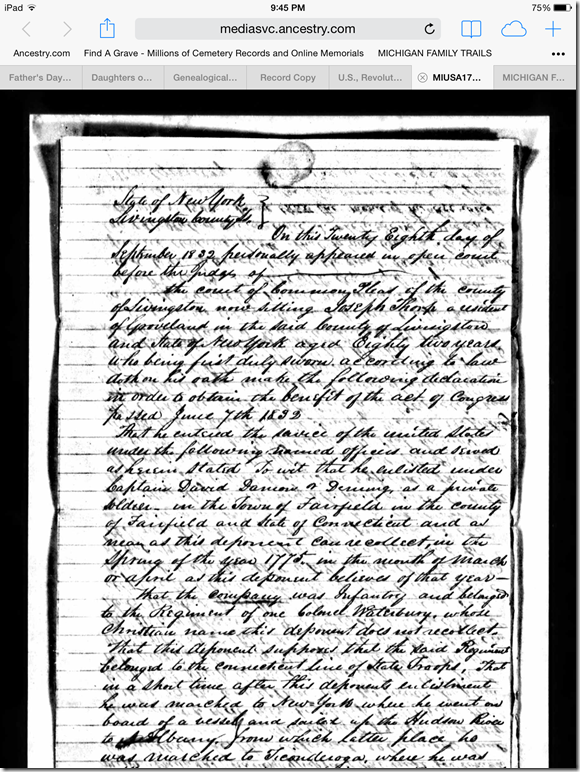 iPad 9:45 PM 75%
mediasvc.ancestry.com
Ancestry.com Find A Grave - Millions of Cemetery Records and Online Memorials MICHIGAN FAMILY TRAILS
Father's Day... Daughters o... Genealogical... Record Copy U.S., Revolut... MIUSA17... MICHIGAN F...
State of New York
Livingston County Ss.
On this Twenty Eighth day of
September 1832 personally appeared in open court
before the Judges of
the court of Common Pleas of the county
of Livingston now sitting Joseph Thorp a resident
of Groveland in the said County of Livingston
and State of New York aged Eighty two years
who being first duly sworn according to law
doth on his oath make the following declaration
in order to obtain the benefit of the act of Congress
passed June 7th 1832
That he entered the service of the united States
under the following named officers and served
as herein stated To wit that he enlisted under
Captain David Dimon as a private
soldier in the Town of Fairfield in the county
of Fairfield and State of Connecticut and as
near as this deponent can recollect in the
Spring of the year 1775 in the month of March
or april as this deponent believes of that year—
That the company was Infantry and belonged
to the Regiment of one Colonel Waterbury, whose
Christian name this deponent does not recollect.
That this deponent supposes that the said Regiment
belonged to the connecticut line of State Troops. That
in a short time after this deponents enlistment
he was marched to New-York where he went on
board of a vessel and sailed up the Hudson River
to Albany from which latter place he
was marched to Ticonderoga, where he was